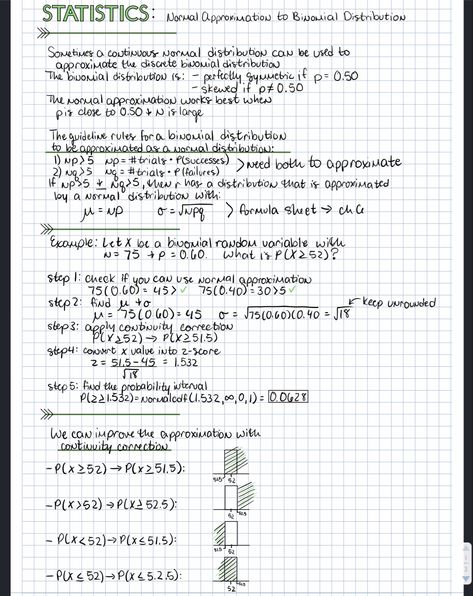 STATISTICS: Normal Approximation to Binomial Distribution
Sometimes a continuous normal distribution can be used to
approximate the discrete binomial distribution
The binomial distribution is: - perfectly symmetric if p = 0.50
- skewed if p ≠ 0.50
The normal approximation works best when
p is close to 0.50 + n is large
The guideline rules for a binomial distribution
to be approximated as a normal distribution:
1) np>5 np = # trials · P(successes)
2) nq>5 nq = # trials · P(failures)
> need both to approximate
If np>5 + nq>5, then r has a distribution that is approximated
by a normal distribution with:
μ = np σ = √npq > formula sheet → ch 6
Example: Let X be a binomial random variable with
n = 75 + p = 0.60. What is P(X≥52)?
step 1: check if you can use normal approximation
75(0.60) = 45 > ✓ 75(0.40) = 30 > 5 ✓
step 2: find μ + σ
keep unrounded
μ = 75(0.60) = 45 σ = √75(0.60)(0.40 = √18
step 3: apply continuity correction
P(X≥52) → P(X≥51.5)
step 4: convert x value into z-score
z = 51.5-45 = 1.532
√18
step 5: find the probability interval
P(z≥1.532) = normalcdf(1.532, ∞, 0, 1) = 0.0628
We can improve the approximation with
continuity correction
- P(X ≥ 52) → P(X ≥ 51.5):
51.5 52
- P(X > 52) → P(X ≥ 52.5):
52 52.5
- P(X < 52) → P(X ≤ 51.5):
51.5 52
- P(X ≤ 52) → P(X ≤ 5.2.5):
52 52.5